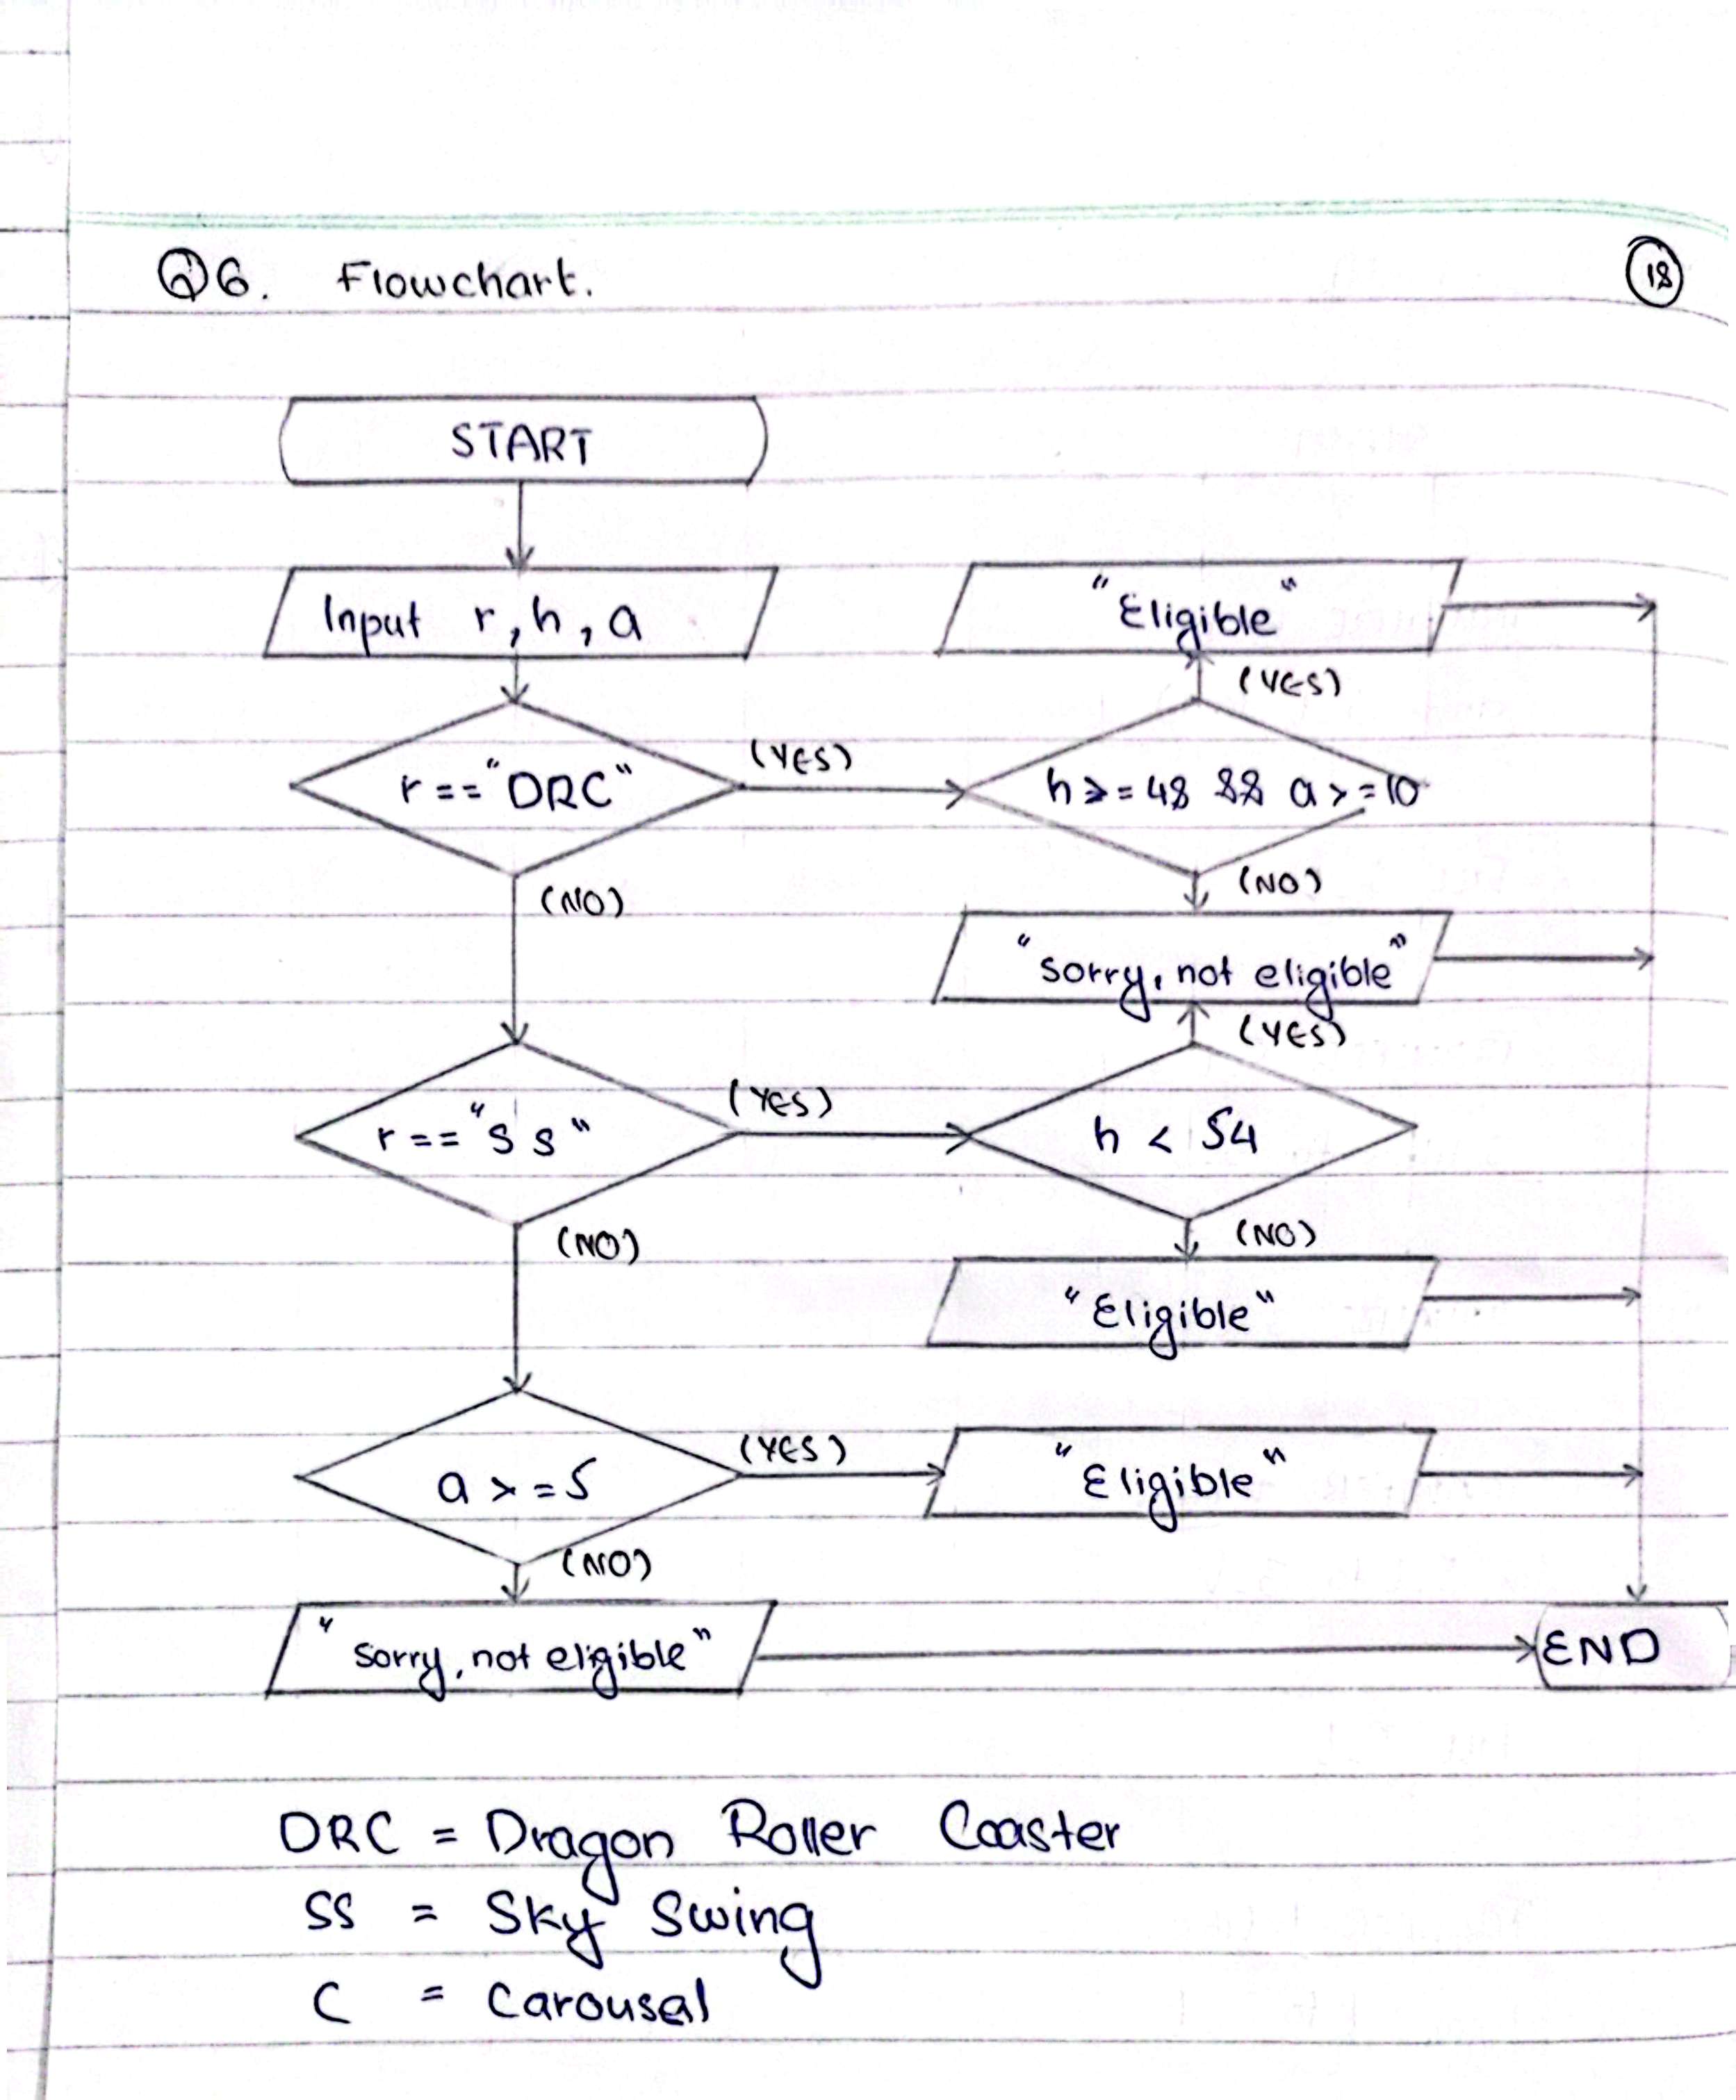 Q6. Flowchart.
18
START
Input r, h, a
"Eligible"
(YES)
r == "DRC"
(YES)
h >= 48 && a >= 10
(NO)
(NO)
"sorry, not eligible"
(YES)
r == "SS"
(YES)
h < 54
(NO)
(NO)
"Eligible"
a >= 5
(YES)
"Eligible"
(NO)
"sorry, not eligible"
END
DRC = Dragon Roller Coaster
SS = Sky Swing
C = Carousal